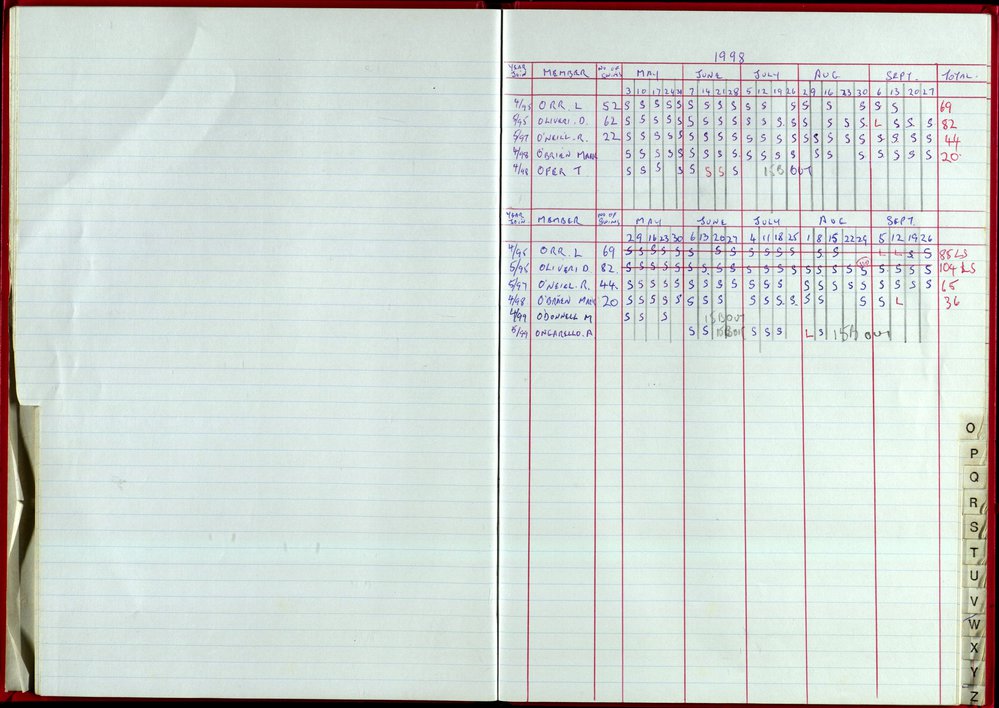 1998
YEAR JOIN MEMBER NO. OF SWIMS MAY JUNE JULY AUG SEPT. TOTAL.
3 10 17 24 31 7 14 21 28 5 12 19 26 2 9 16 23 30 6 13 20 27
4/95 ORR. L 52 S S S S S S S S S S S S S S S S S 69
5/95 OLIVERI. D. 62 S S S S S S S S S S S S S S S S L S S S 82
5/97 O'NEILL. R. 22 S S S S S S S S S S S S S S S S S S S S S S 44
4/98 O'BRIEN MARK S S S S S S S S S S S S S S S S S S S S 20
4/98 OPER T S S S S S S S S 15B OUT
YEAR JOIN MEMBER NO. OF SWIMS MAY JUNE JULY AUG SEPT.
2 9 16 23 30 6 13 20 27 4 11 18 25 1 8 15 22 29 5 12 19 26
4/95 ORR. L 69 S S S S S S S S S S S S S S L L S S 85 LS
5/95 OLIVERI D. 82 S S S S S S S S S S S S S S S S S S S S S S 104 LS
5/97 O'NEILL. R. 44 S S S S S S S S S S S S S S S S S S S S S 65
4/98 O'BRIEN MARK 20 S S S S S S S S S S S S S S S S L 36
4/99 O'DONNELL M S S S 15B OUT
5/99 ONGARELLO. A. S S 15B OUT S S S L S 15B OUT
O
P
Q
R
S
T
U
V
W
X
Y
Z